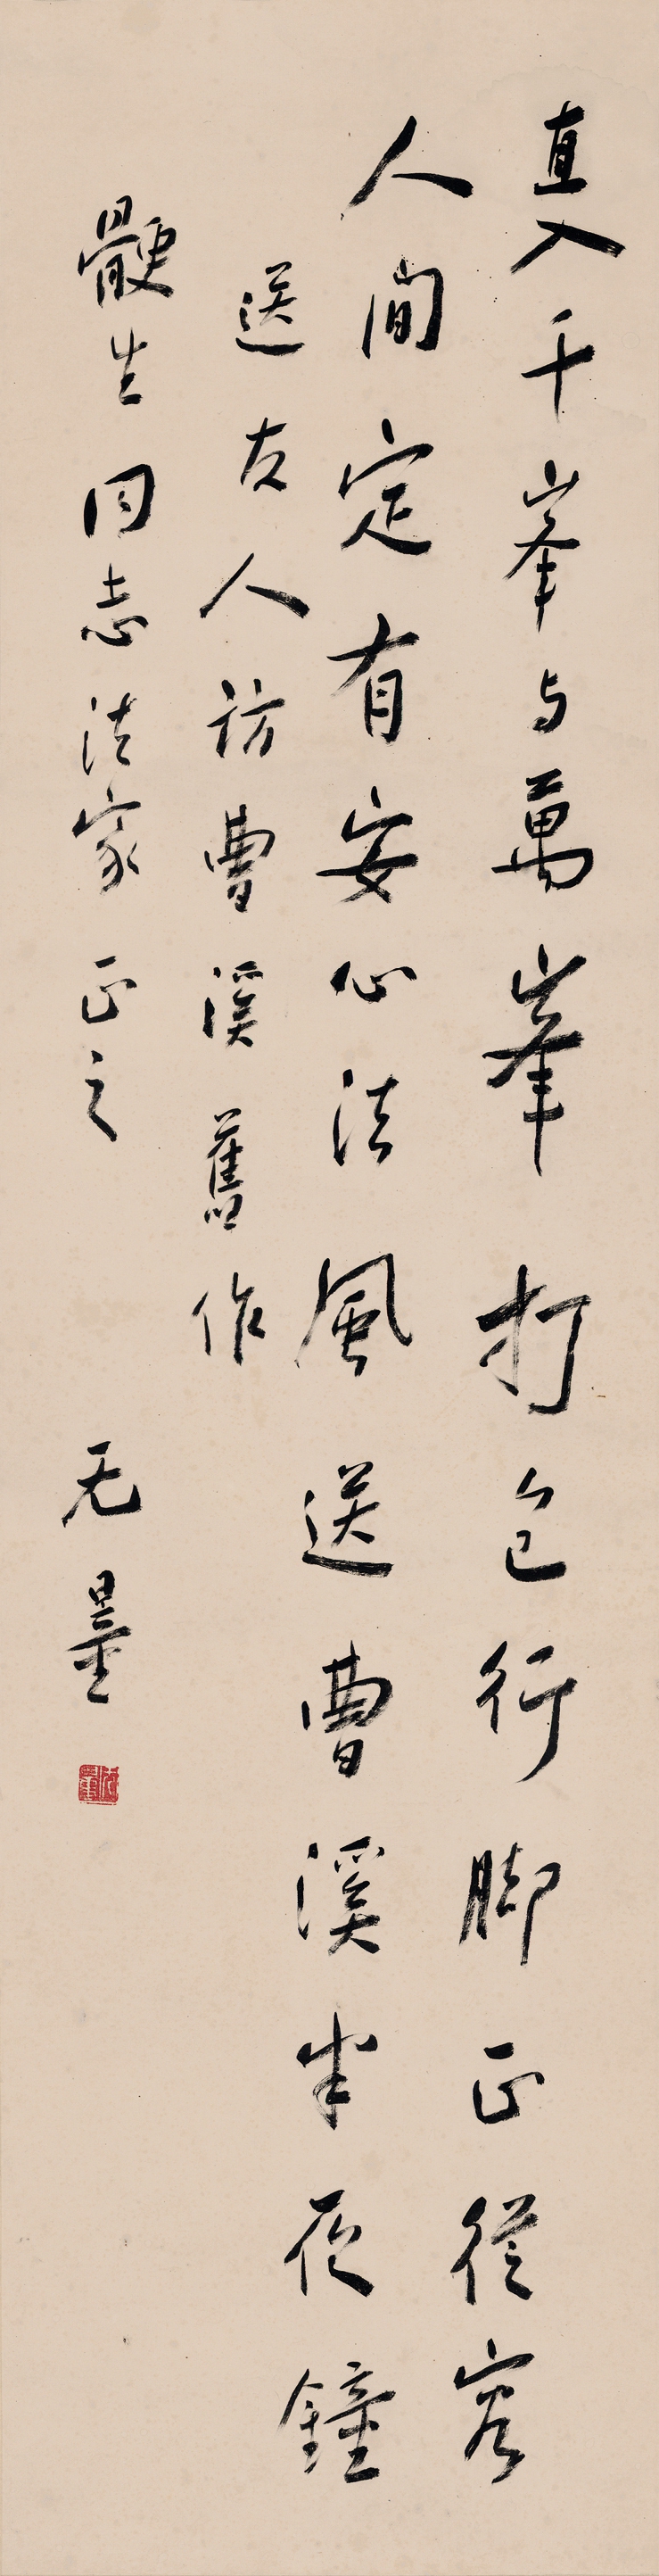 直入千峯与萬峯打包行脚正從容
人間定有安心法風送曹溪半夜鐘
送友人訪曹溪舊作
骾生同志法家正之
无量